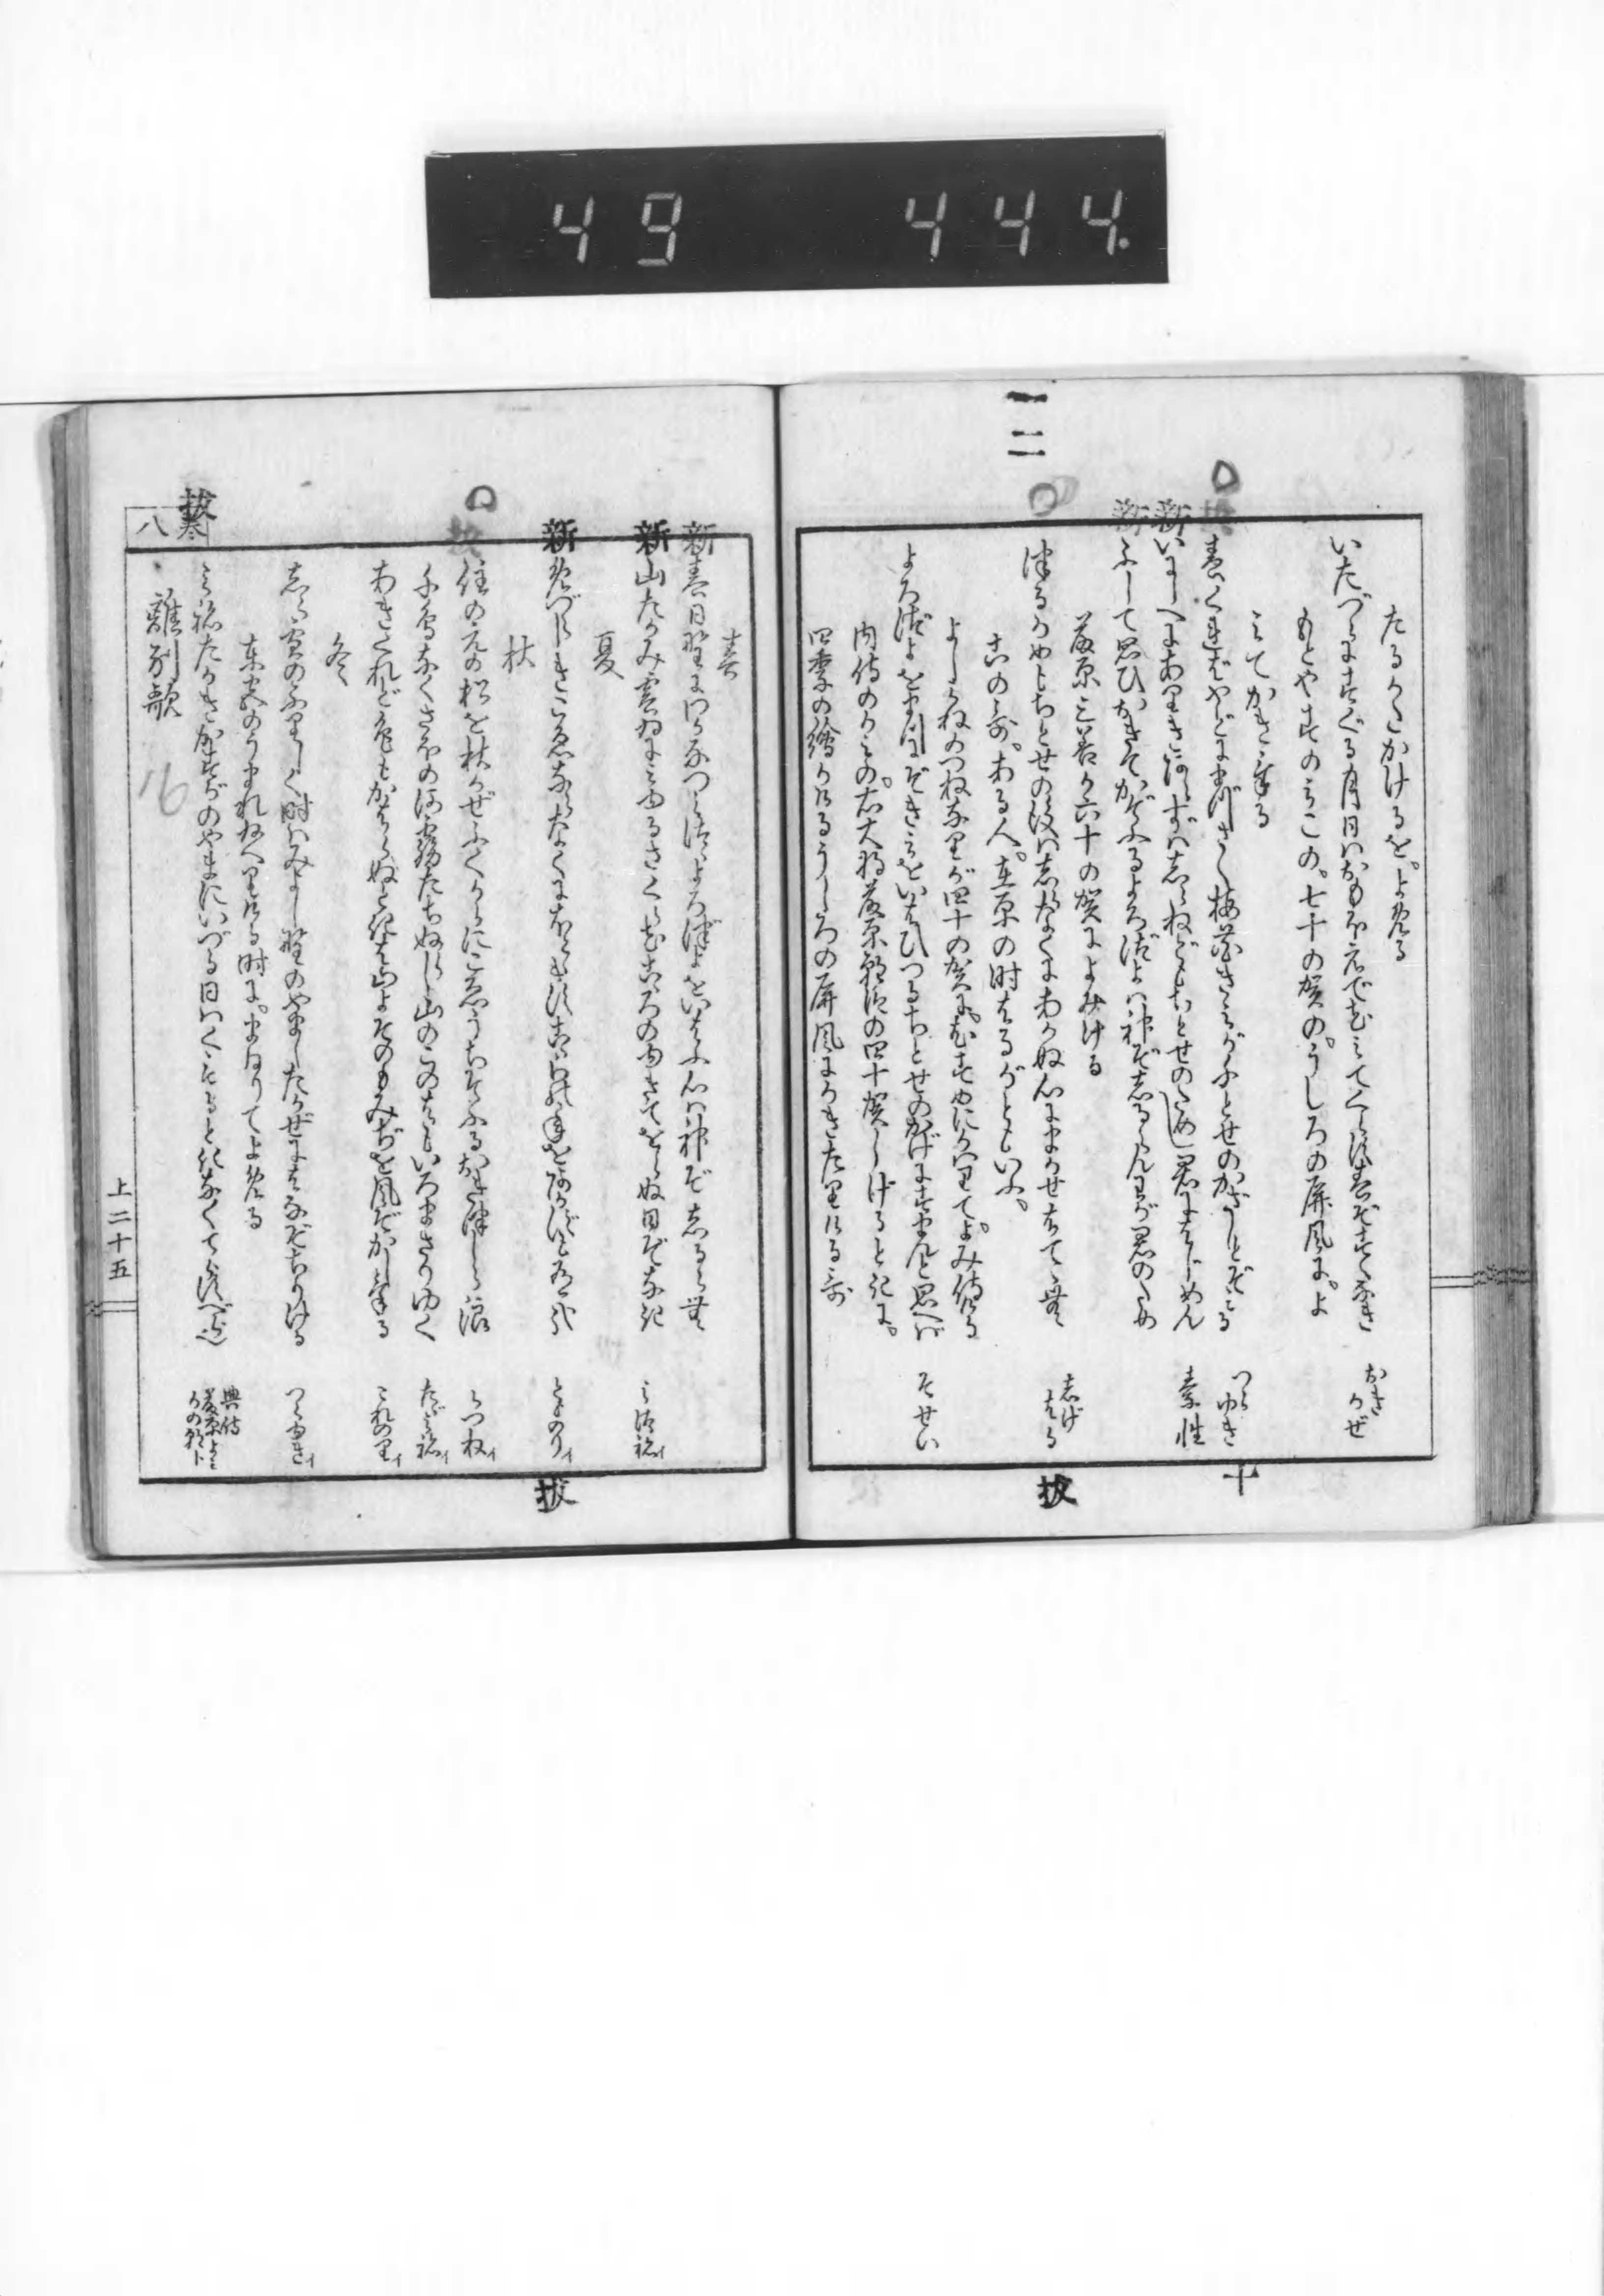 49 444.
一
二
たるかたかけるを。よめる
いたづらにすぐる月日はおもほえで花みてくらす春ぞすくなき
おきかぜ
もとやすのみこの。七十の賀の。うしろの屏風に。よ
みてかきける
抜
春くればやどにまづさく梅花きみがちとせのかざしとぞみる
つらゆき
十
新
いにしへにありきあらずはしらねどもちとせのためし君にはじめん
素性
新
ふして思ひおきてかぞふるよろづよは神ぞしるらんわが君のため
藤原三善が六十の賀によみける
つるかめもちとせの後はしらなくにあかぬ心にまかせはてゝむ
しげはる
抜
この哥。ある人。在原の時はるがともいふ。
よしみねのつねなりが四十の賀に。むすめにかはりて。よみ侍ける
よろづよをまつにぞきみをいはひつるちとせのかげにすまんと思へば
そせい
内侍のかみの。右大将藤原朝臣の四十賀しける時に。
四季の繪かけるうしろの屏風にかきたりける哥
春
新
春日野にわかなつみつゝよろづよをいはふ心は神ぞしるらむ
新
山たかみ雲ゐにみゆるさくら花心の行ておらぬ日ぞなき
みつねイ
夏
新
めづらしきこゑならなくに郭公こゝらの年をあかずもあるかな
とものりイ
抜
秋
抜
住の江の松を秋かぜふくからにこゑうちそふるおきつしら浪
みつねイ
千鳥なくさほの河霧たちぬらし山のこのはもいろまさりゆく
たゞみねイ
あきくれど色もかはらぬときは山よそのもみぢを風ぞかしける
これのりイ
冬
しら雪のふりしく時はみよし野のやました風に花ぞちりける
つらゆきイ
東宮のうまれ給へりける時に。まいりてよめる
抜
みねたかきかすがのやまにいづる日はくもる時なくてらすべらなり
典侍藤原よるかの朝臣
離別歌
16
巻
八
上二十五